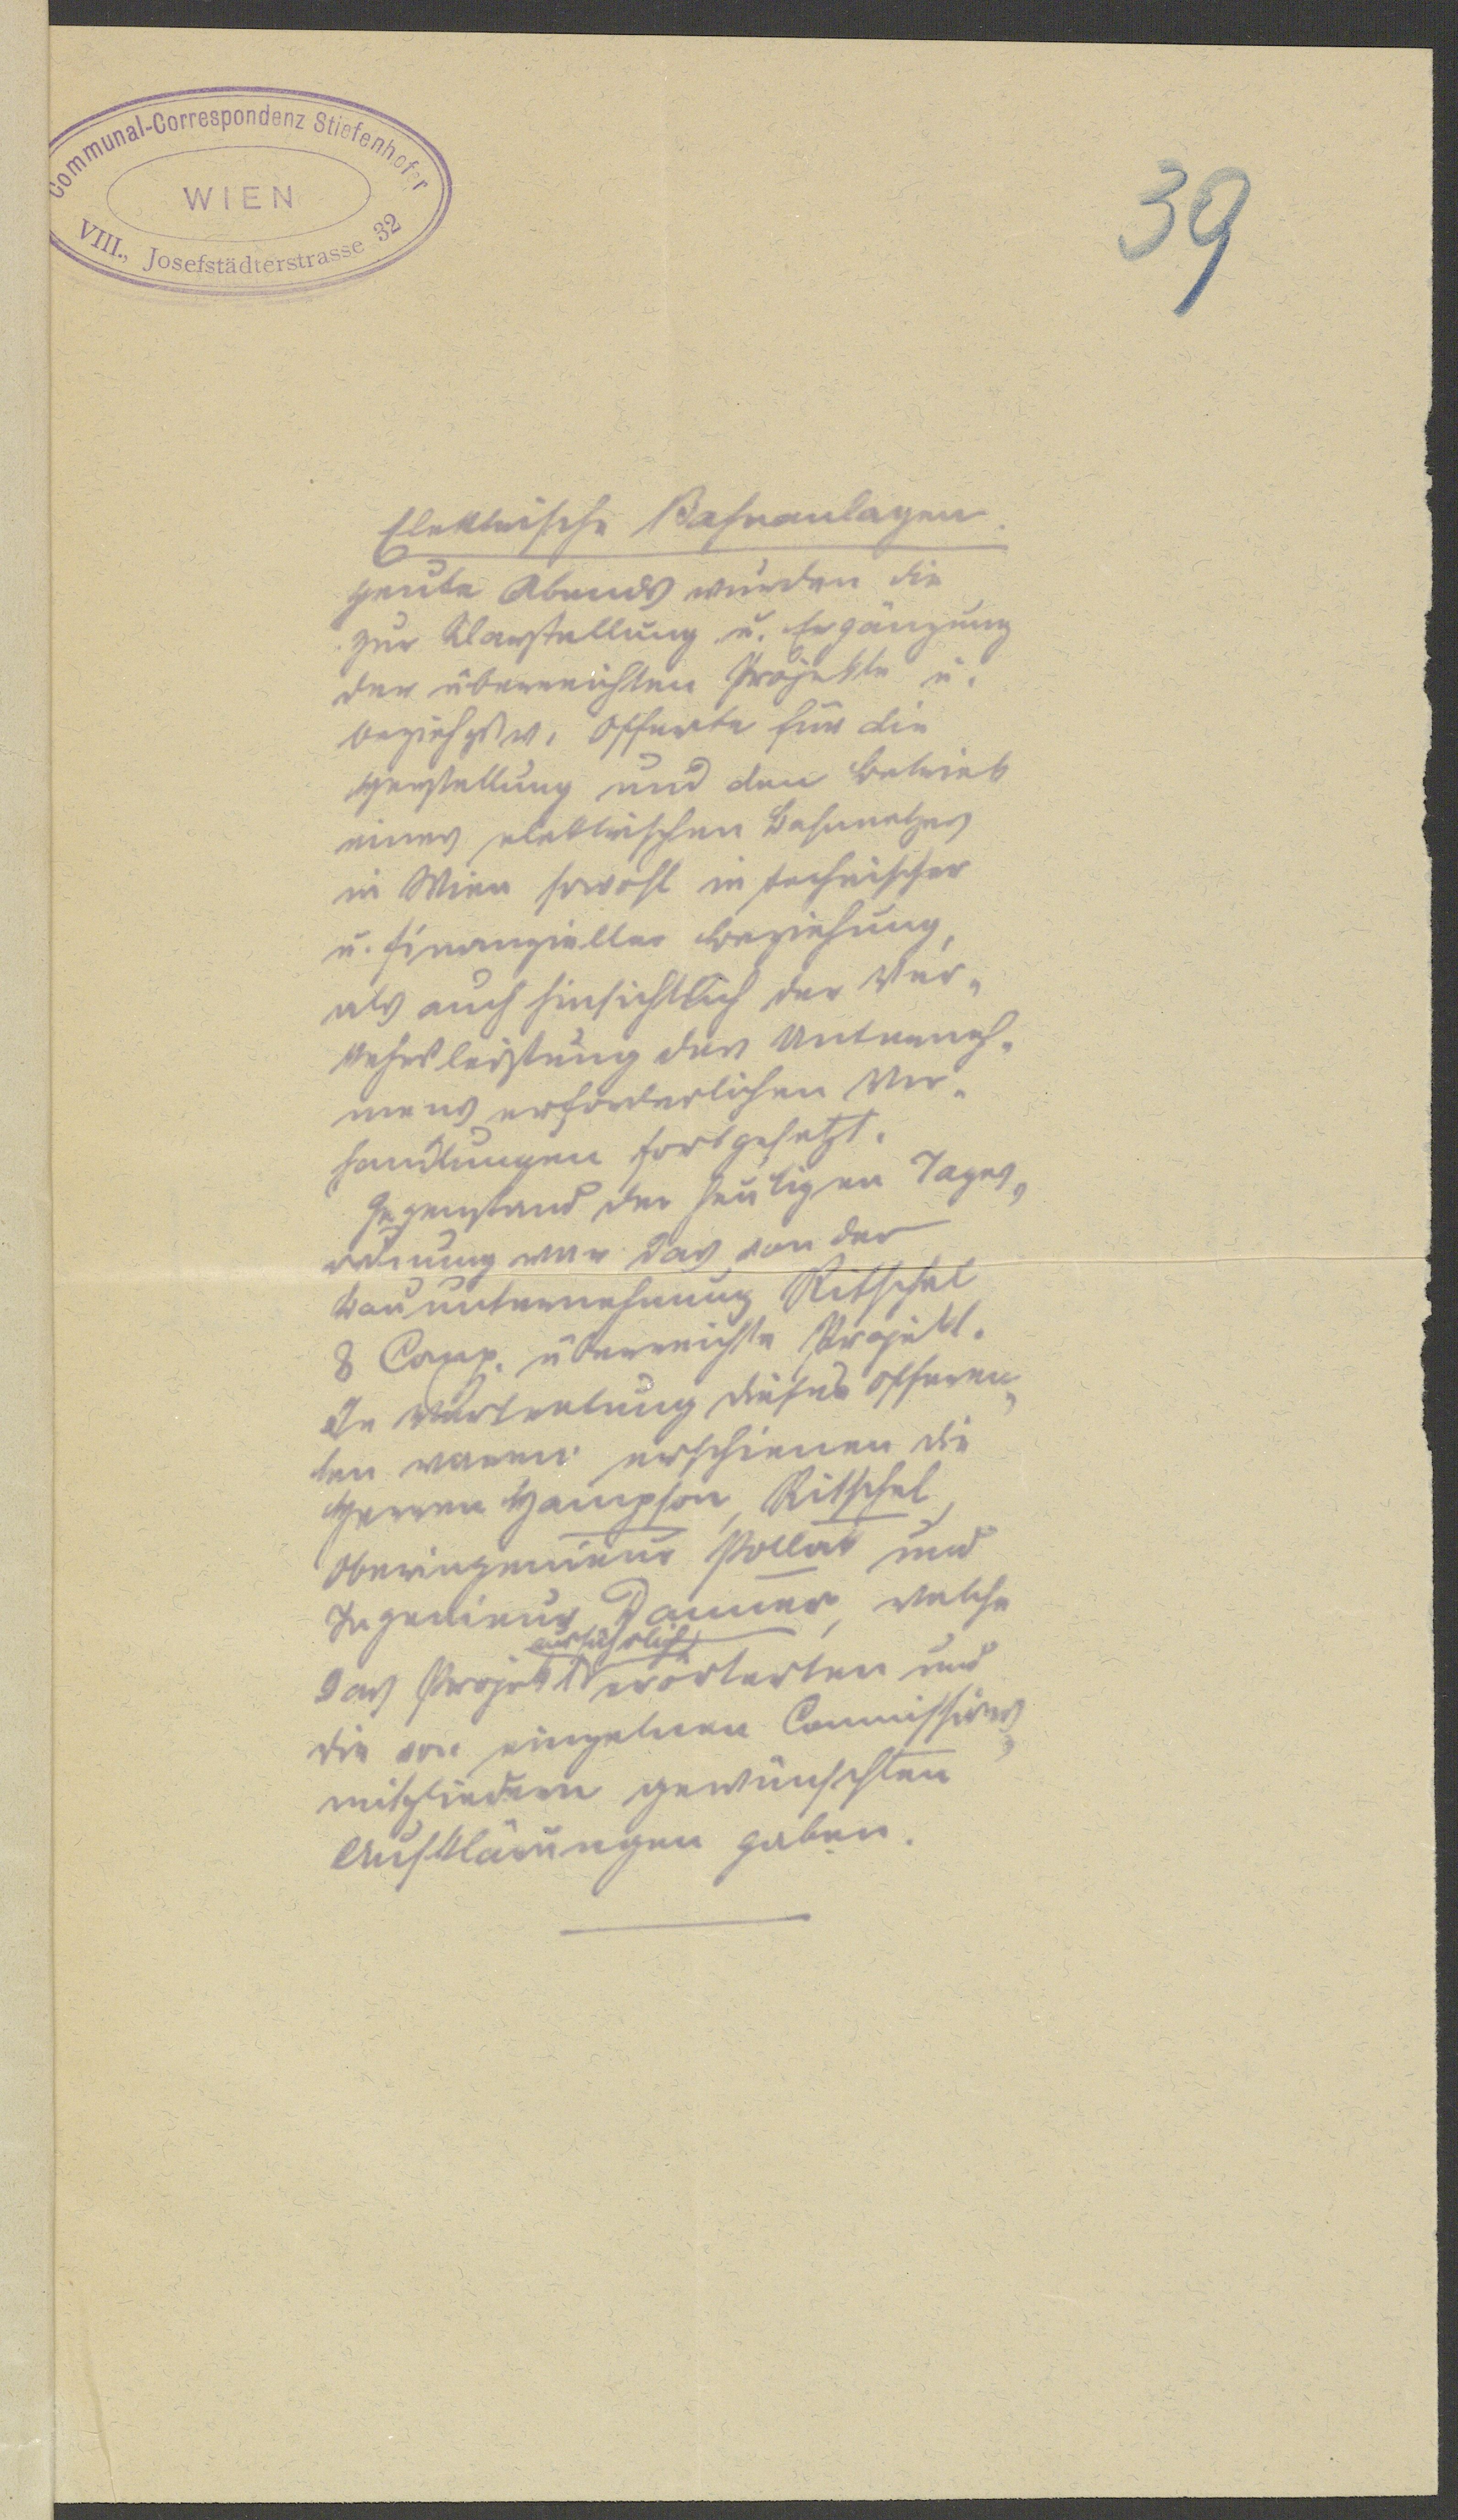 Communal-Correspondenz Stiefenhofer
WIEN
VIII., Josefstädterstrasse 32
39
Elektrische Bahnanlagen.
Heute Abends wurden die
zur Klarstellung u. Ergänzung
der überreichten Projekte u.
beziehgsw. Offerte für die
Herstellung und den Betrieb
eines elektrischen Bahnnetzes
in Wien sowohl in technischer
u. finanzieller Beziehung,
als auch hinsichtlich der Ver-
kehrsleistung des Unterneh-
mens erforderlichen Ver-
handlungen fortgesetzt.
Gegenstand der heutigen Tages-
ordnung war das von der
Bauunternehmung Ritschel
& Comp. überreichte Projekt.
In Vertretung dieses Offeren-
ten waren erschienen die
Herren Hampson, Ritschel,
Oberingenieur Pollak und
Ingenieur Danner, welche
ausführlich
das Projekt erörterten und
die von einzelnen Commissions-
mitgliedern gewünschten
Aufklärungen gaben.